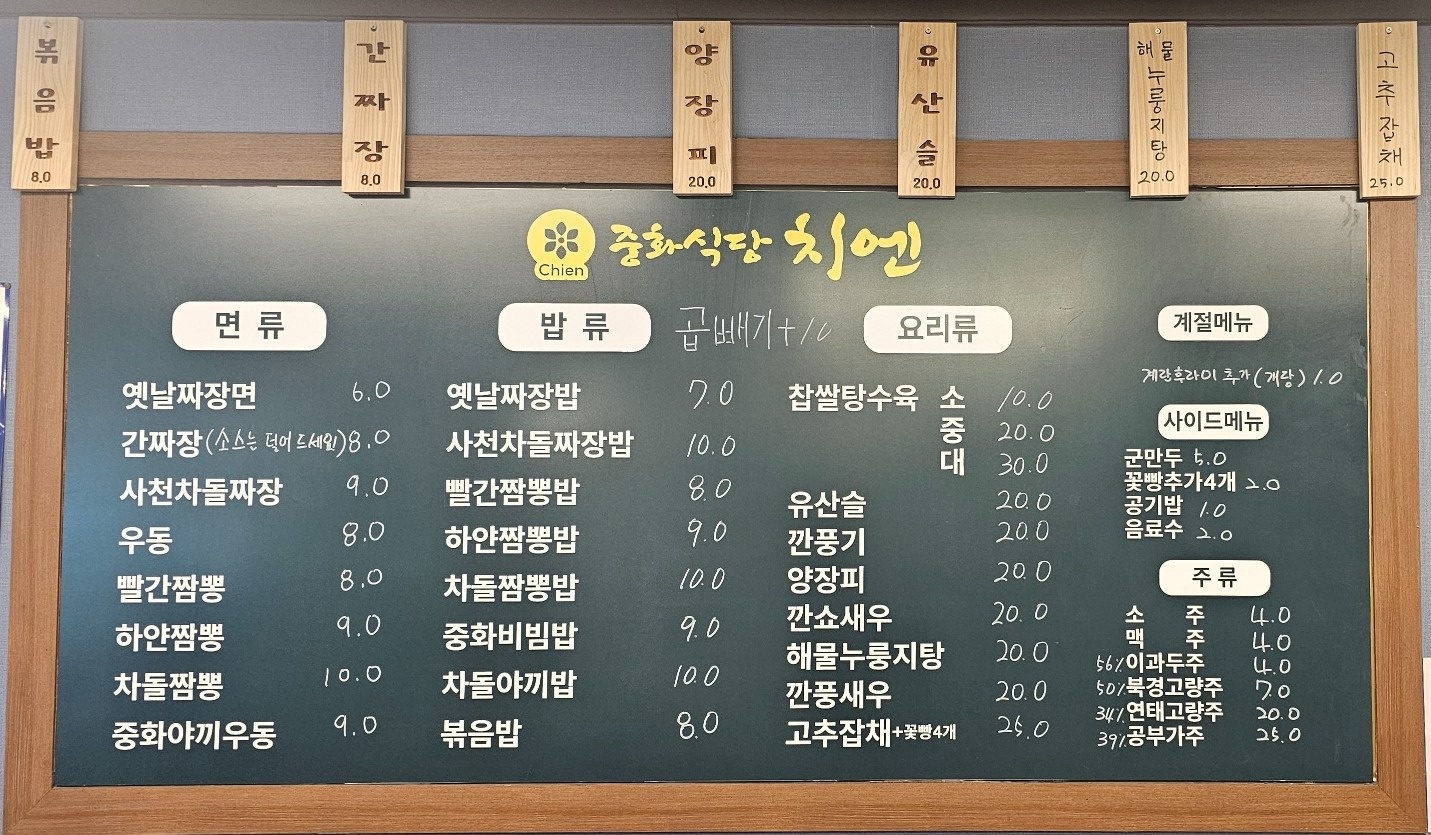 볶음밥 8.0
간짜장 8.0
양장피 20.0
유산슬 20.0
해물누룽지탕 20.0
고추잡채 25.0
Chien 중화식당 치엔
면 류
옛날짜장면 6.0
간짜장(소스는 덜어드세요) 8.0
사천차돌짜장 9.0
우동 8.0
빨간짬뽕 8.0
하얀짬뽕 9.0
차돌짬뽕 10.0
중화야끼우동 9.0
밥 류 곱빼기+1.0
옛날짜장밥 7.0
사천차돌짜장밥 10.0
빨간짬뽕밥 8.0
하얀짬뽕밥 9.0
차돌짬뽕밥 10.0
중화비빔밥 9.0
차돌야끼밥 10.0
볶음밥 8.0
요리류
찹쌀탕수육 소 10.0
중 20.0
대 30.0
유산슬 20.0
깐풍기 20.0
양장피 20.0
깐쇼새우 20.0
해물누룽지탕 20.0
깐풍새우 20.0
고추잡채+꽃빵4개 25.0
계절메뉴
계란후라이 추가(개당) 1.0
사이드메뉴
군만두 5.0
꽃빵추가4개 2.0
공기밥 1.0
음료수 2.0
주 류
소 주 4.0
맥 주 4.0
56% 이과두주 4.0
50% 북경고량주 7.0
34% 연태고량주 20.0
39% 공부가주 25.0